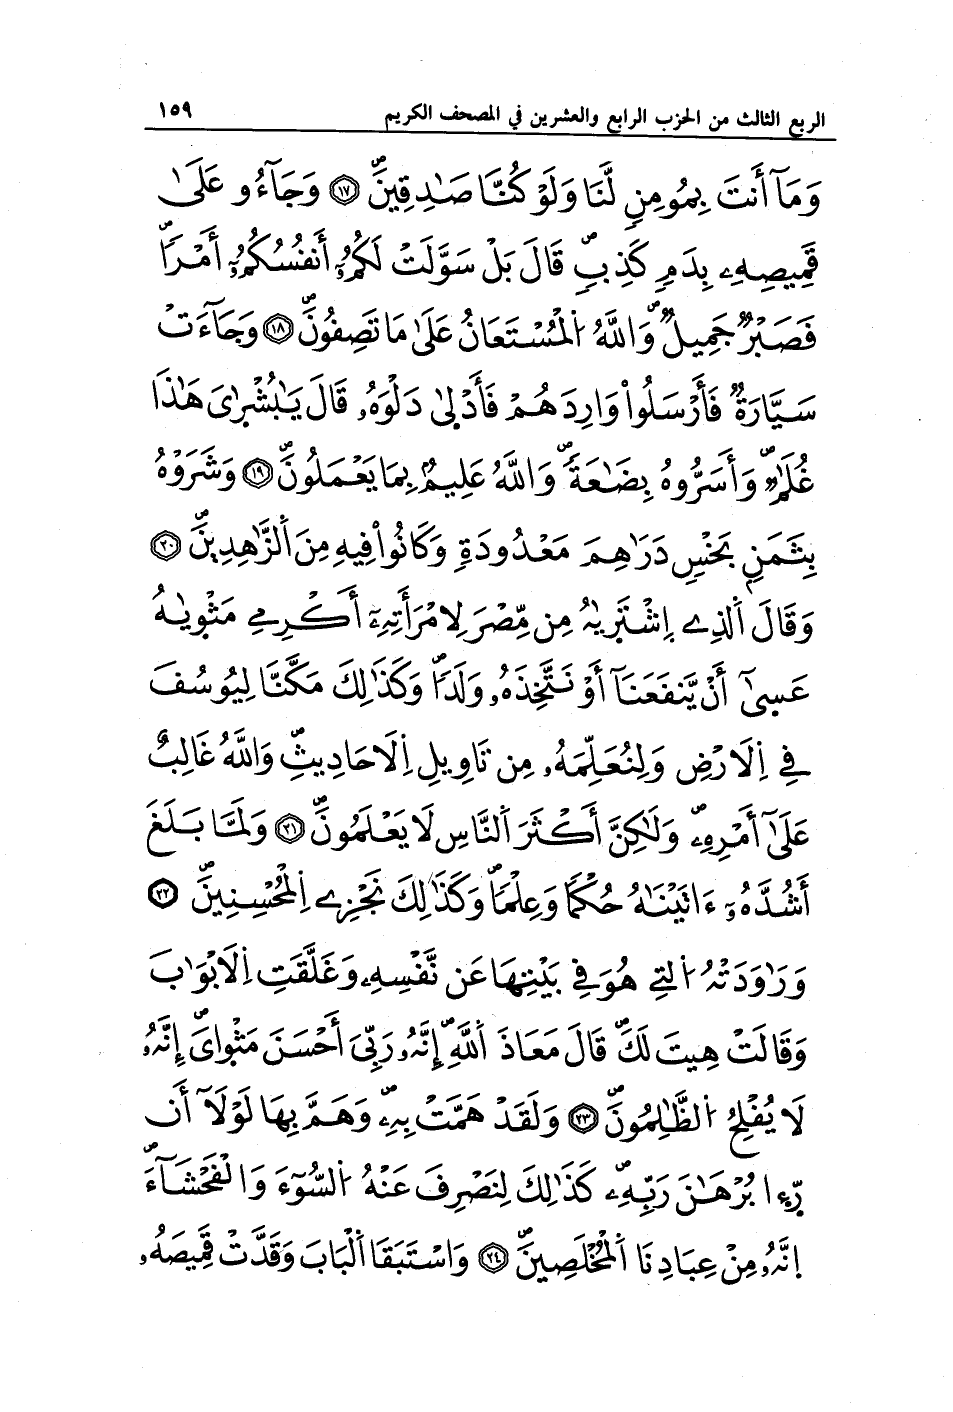 الربع الثالث من الحزب الرابع والعشرين في المصحف الكريم ١٥٩
وَمَآ أَنتَ بِمُومِنٍ لَّنَا وَلَوْ كُنَّا صَٰدِقِينَۖ ١٧ وَجَآءُو عَلَىٰ
قَمِيصِهِۦ بِدَمٍ كَذِبٍۖ قَالَ بَلْ سَوَّلَتْ لَكُمُۥٓ أَنفُسُكُمُۥٓ أَمْراٗۖ
فَصَبْرٌ جَمِيلٌۖ وَاللَّهُ اُ۬لْمُسْتَعَانُ عَلَىٰ مَا تَصِفُونَۖ ١٨ وَجَآءَتْ
سَيَّارَةٌ فَأَرْسَلُواْ وَارِدَهُمْ فَأَدْلىٰ دَلْوَهُۥ قَالَ يَٰبُشْرٰىَ هَٰذَا
غُلَٰمٌۖ وَأَسَرُّوهُ بِضَٰعَةٗۖ وَاللَّهُ عَلِيمٌۢ بِمَا يَعْمَلُونَۖ ١٩ وَشَرَوْهُ
بِثَمَنٍۢ بَخْسٍ دَرَٰهِمَ مَعْدُودَةٍ وَكَانُواْ فِيهِ مِنَ اَ۬لزَّٰهِدِينَۖ ٢٠
وَقَالَ اَ۬لذِے اِ۪شْتَر۪يٰهُ مِن مِّصْرَ لِامْرَأَتِهِۦٓ أَكْرِمِے مَثْو۪يٰهُ
عَس۪ىٰٓ أَنْ يَّنفَعَنَآ أَوْ نَتَّخِذَهُۥ وَلَداٗۖ وَكَذَٰلِكَ مَكَّنَّا لِيُوسُفَ
فِي اِ۬لَارْضِ وَلِنُعَلِّمَهُۥ مِن تَاوِيلِ اِ۬لَاحَادِيثِۖ وَاللَّهُ غَالِبٌ
عَلَىٰٓ أَمْرِهِۦۖ وَلَٰكِنَّ أَكْثَرَ اَ۬لنَّاسِ لَا يَعْلَمُونَۖ ٢١ وَلَمَّا بَلَغَ
أَشُدَّهُۥٓ ءَاتَيْنَٰهُ حُكْماٗ وَعِلْماٗۖ وَكَذَٰلِكَ نَجْزِے اِ۬لْمُحْسِنِينَۖ ٢٢
وَرَٰوَدَتْهُ اُ۬لتِے هُوَ فِي بَيْتِهَا عَن نَّفْسِهِۦ وَغَلَّقَتِ اِ۬لَابْوَٰبَ
وَقَالَتْ هِيتَ لَكَۖ قَالَ مَعَاذَ اَ۬للَّهِۖ إِنَّهُۥ رَبِّيَ أَحْسَنَ مَثْوَايَۖ إِنَّهُۥ
لَا يُفْلِحُ اُ۬لظَّٰلِمُونَۖ ٢٣ وَلَقَدْ هَمَّتْ بِهِۦۖ وَهَمَّ بِهَا لَوْلَآ أَن
رّ۪ء۪ا بُرْهَٰنَ رَبِّهِۦۖ كَذَٰلِكَ لِنَصْرِفَ عَنْهُ اُ۬لسُّوٓءَ وَالْفَحْشَآءَۖ
اِنَّهُۥ مِنْ عِبَادِنَا اَ۬لْمُخْلَصِينَۖ ٢٤ وَاسْتَبَقَا اَ۬لْبَابَ وَقَدَّتْ قَمِيصَهُۥ